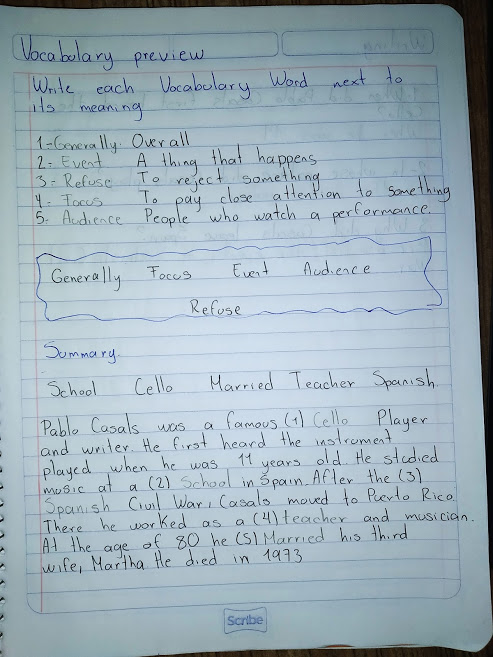 Vocabulary preview
Write each Vocabulary Word next to
its meaning
1-Generally. Overall
2- Event A thing that happens
3- Refuse To reject something
4- Focus To pay close attention to something
5- Audience People who watch a performance.
Generally Focus Event Audience
Refuse
Summary.
School Cello Married Teacher Spanish.
Pablo Casals was a famous (1) Cello Player
and writer. He first heard the instrument
played when he was 11 years old. He studied
music at a (2) School in Spain. After the (3)
Spanish Civil War, Casals moved to Puerto Rico.
There he worked as a (4) teacher and musician.
At the age of 80 he (5) Married his third
wife, Martha He died in 1973
Scribe